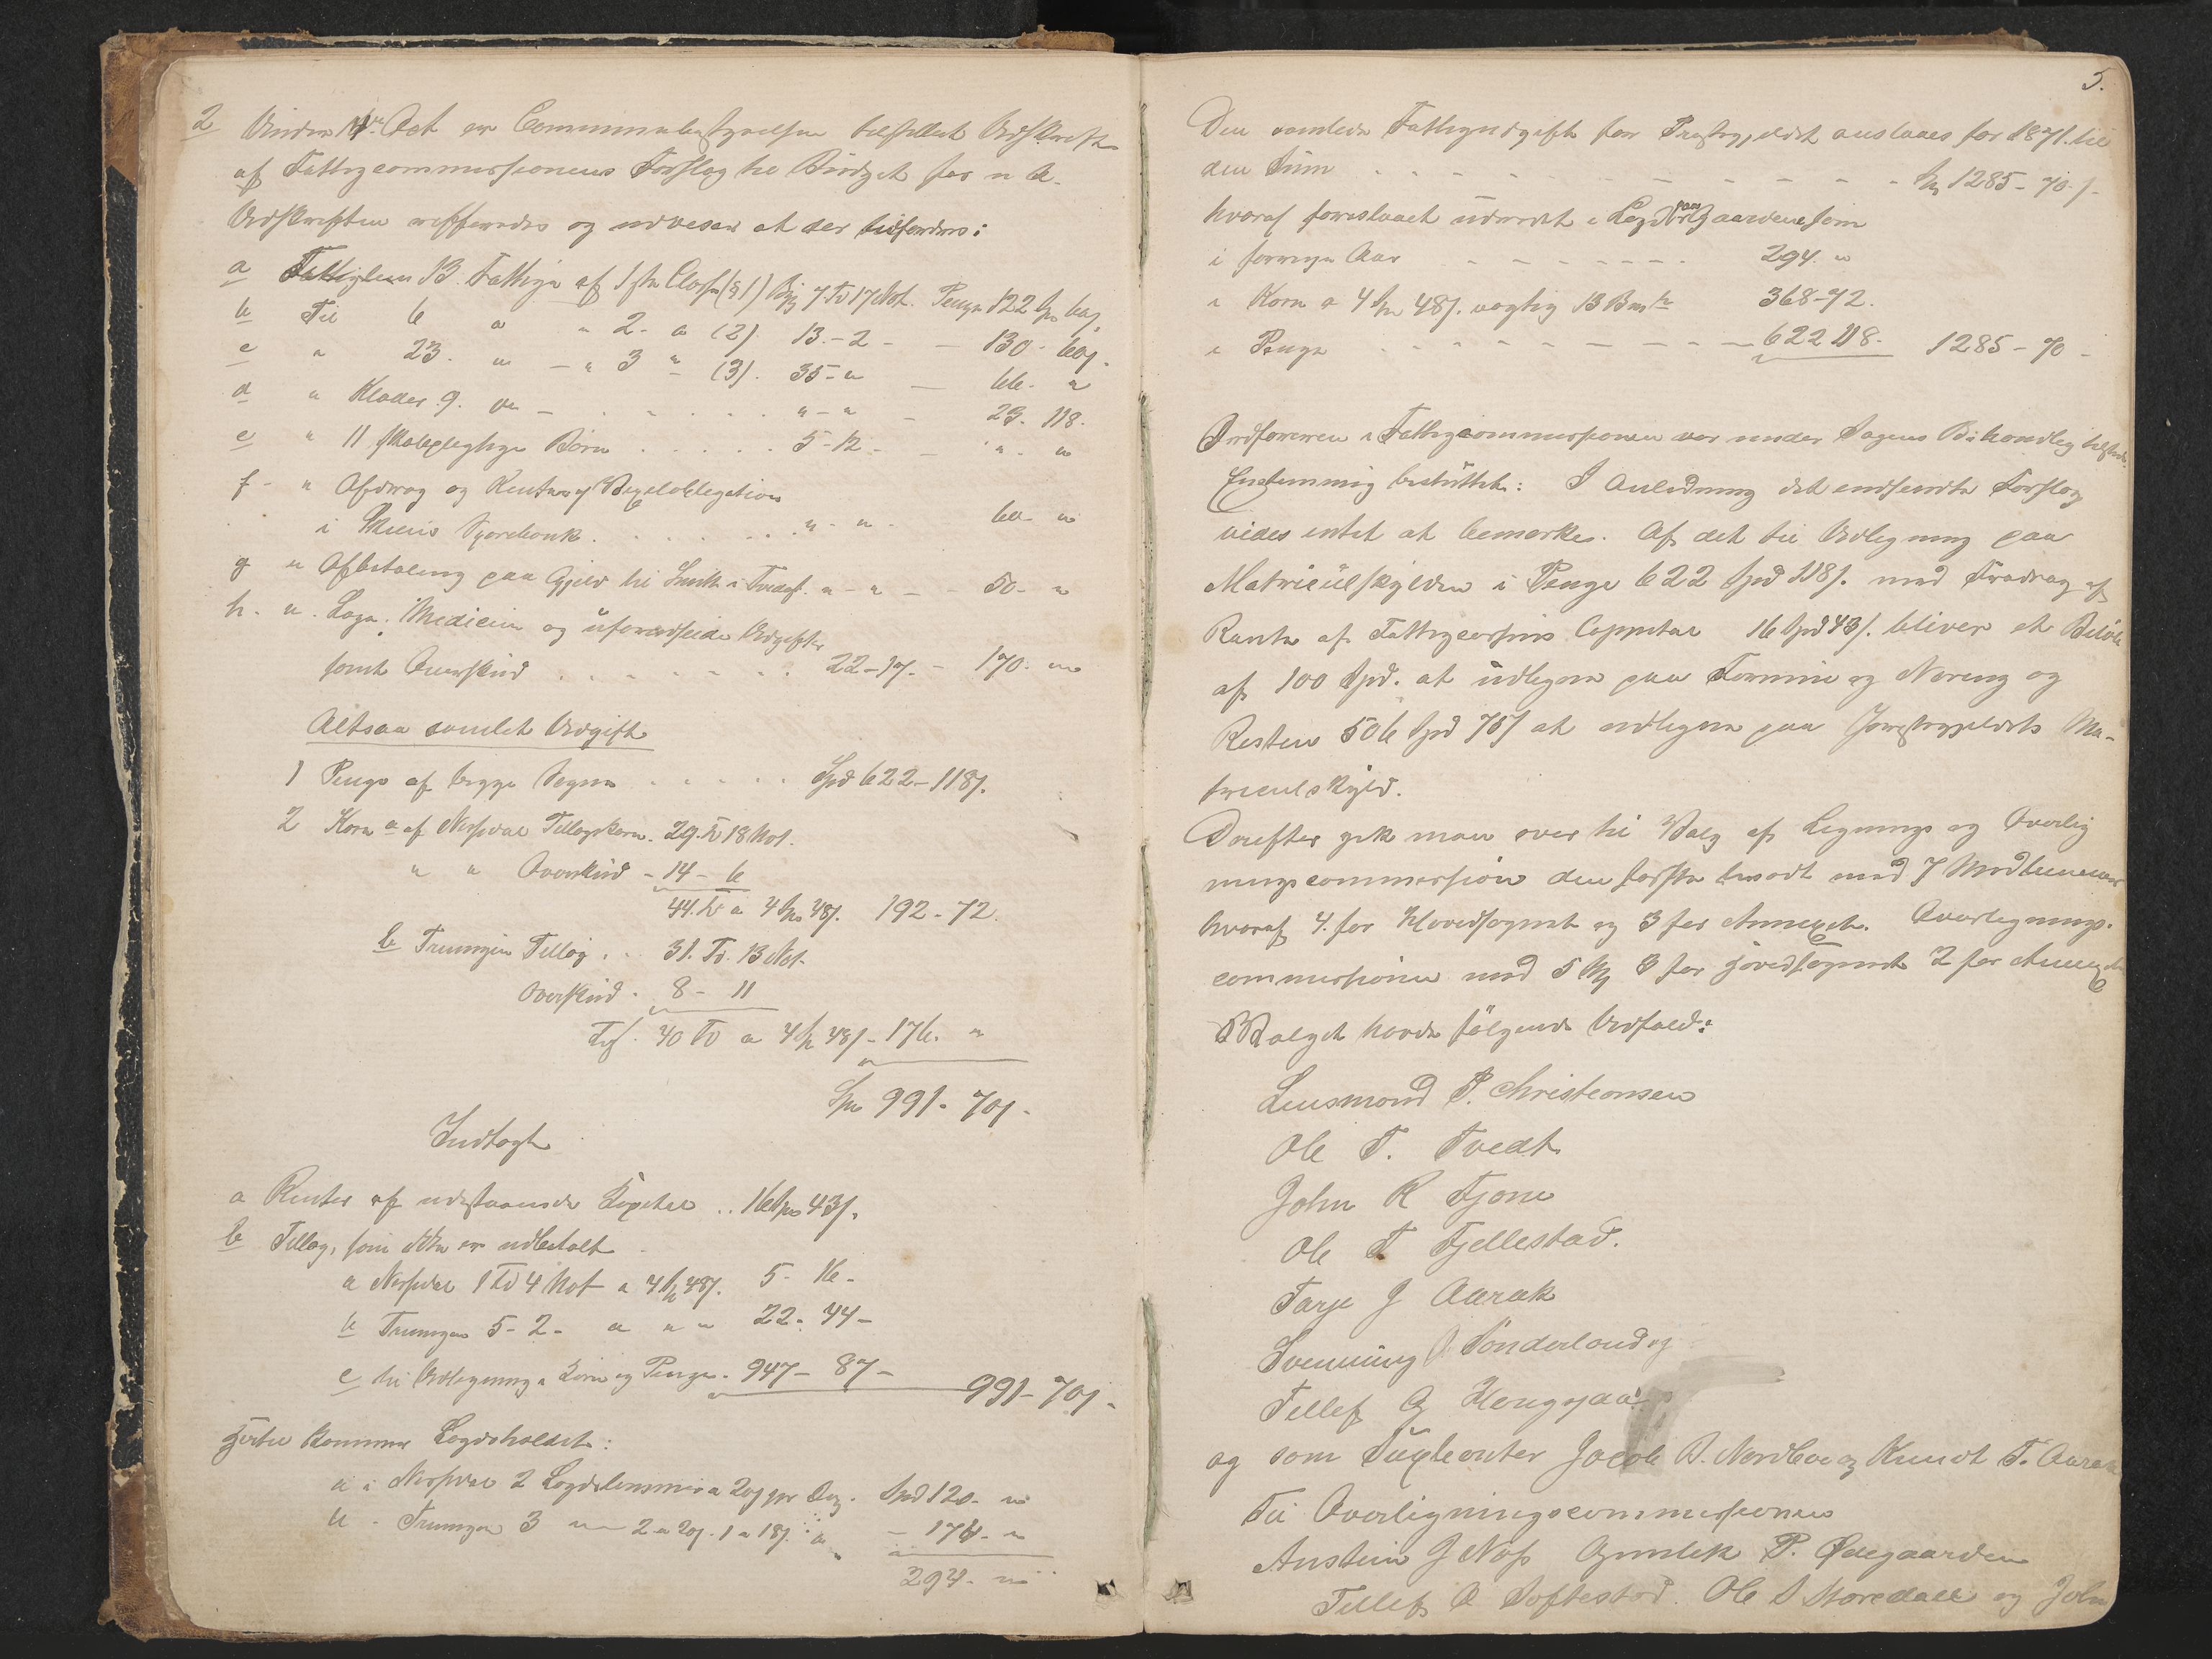 2 Under 14de Oct er Communebestyrelsen tilstillet Udskrift
af Fattigcommissionens Forslag til Budget for n A.
Udskriften reffererdes og udveser at der tilfordres:
a Fattiglem 13 Fattige af 1ste Classe (§1) Byg 7 Td 17 Kot. Penge 122 Spd 60 s
b Til 6 " " 2- " (2) 13.-2- - 130- 60 s.
c " 23. " - " 3 " (3). 35-" - 66. "
d " Klæder 9. " - . . . . . "-" - 23. 118.
e " 11 skolepligtige Børn . . . . . 5-12- - ". "
f - " Afdrag og Renter af Vexelobligation
i Skiens Sparebank . . . . . . "-" - 60 "
g " Afbetaling paa Gjeld til Smith i Tvedest. "-" - - 50- "
h. ". Læge. Medicin og uforudseide Udgifter
samt Overskud . . . . . . . 22-17.- 170. "
Altsaa samlet Udgift
1 Penge af begge Sogne . . . . . Spd 622-118 s.
2 Korn a af Nissedal Tillægskorn. 29. Td 18 Kot.
" " Overskud - 14- 6
44. Td a 4 Spd 48 s. 192-72.
b Treungen Tillæg . . 31. Td. 13 Kot.
Overskud . 8- 11
Tils. 40 Td a 4 Sp 48 s - 176. "
Spd 991- 70 s-
Indtægt
a Renter af udestaaende Kapital .. 16 Spd 43 s.
b Tillæg, som ikke er udbetalt
a Nissedal 1 Td 4 Kot a 4 Sp 48 s. 5- 16-
b Treungen 5-2- " " " 22- 44-
c til Udlegning i Korn og Penge - 947- 87- 991- 70 s-
hertil kommer Lægdsholdet:
a i Nissedal 2 Lægdslemmer a 20 s pr Dag. Spd 120- "
b - Treungen 3 " 2 a 20 s. 1 a 18 s. " - 174- "
294- "
5.
Den samlede Fattigudgift for Præstegjeldet anslaaes for 1871. til
den Sum - - - - - - - - - - Spd 1285-70 s-
hvoraf foreslaaet uderedet i Lægd paa Gaardene som
i forrige Aar - - - - - - - 294. "
i Korn a 4 Sp 48 s. vægtig 13 Bmk 368-72.
i Penge - - - - - - - - 622 118. 1285-70-
Ordføreren i Fattigcommissionen var under Sagens Behandlig tilstede.
Enstemmig besluttet: I Anledning det indsendte Forslag
vides intet at bemerke. Af det til Udlegning paa
Matriculskylden i Penge 622 Spd 118 s. med Fradrag af
Rente af Fattigcassens Cappital 16 Spd 43 s. bliver et Beløb
af 100 Spd. at udlegne paa Formue og Næring og
Resten 506 Spd 75 s at udlegne paa Præstegjeldets Ma-
triculskyld.
Derefter gik man over til Valg af Lignings og Overlig
ningscommission den første besadt med 7 Medlemmer
hvoraf 4. for Hovedsognet og 3 for Annexet. Overlignings-
commissionen med 5 3 for Hovedsognet 2 for Annexet
Valget havde følgende Udfald:
Lensmand P. Christensen
Ole T. Tvedt
John K Fjone
Ole T Fjellestad.
Tarje J Aarak
Svenning Sønderland og
Tellef O Haugsjaa
og som Supleanter Jacob B. Nordbøe og Knudt T. Aarak
Til Overligningscommissionen
Austein J Næs Gunlek P. Ødegaarden
Tellef O Toftestad. Ole S Moredall og John